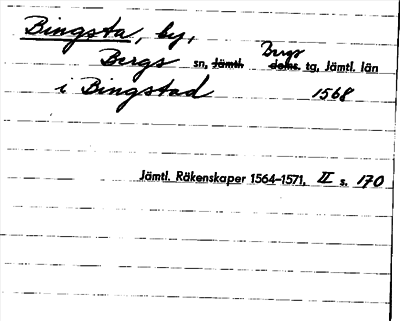 Bingsta, by,
Bergs sn, Jämtl. Bergs doms. tg, Jämtl. län
i Bingstad 1568
Jämtl. Räkenskaper 1564–1571, II s. 170